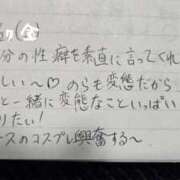 (金)
分の性癖を素直に言ってくれ
しい〜♡のらも変態だから
と一緒に変態なこといっぱい
りたい!
ースのコスプレ興奮する〜